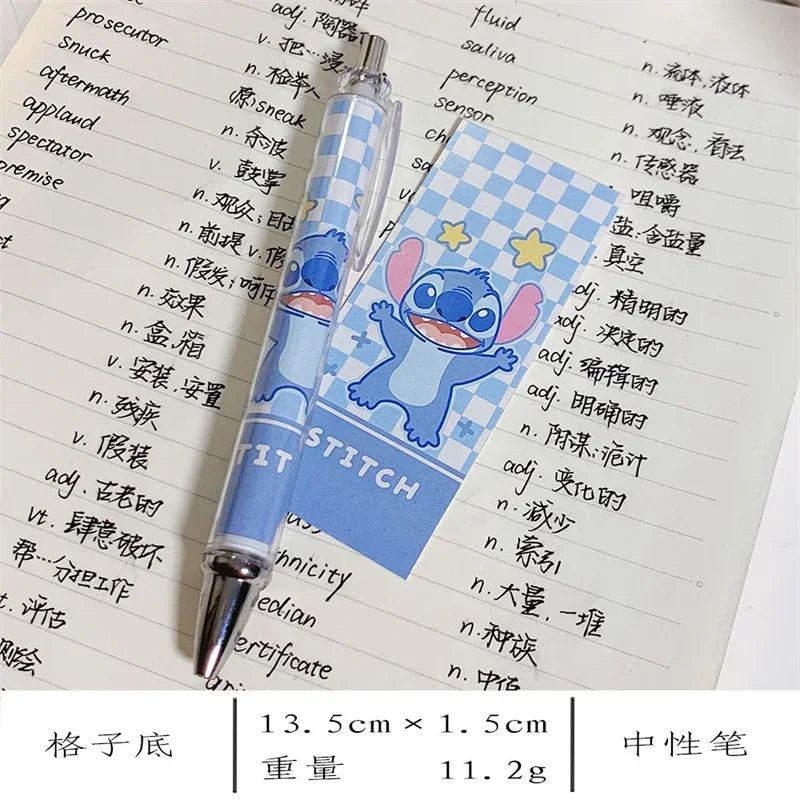 prosecutor
snuck
aftermath
applaud
spectator
premise
adj. 陶器
v. 把…浸
n. 检举人
原:sneak
n. 余波
v. 鼓掌
n. 观众;
n. 前提 v. 假
n. 假发;
n. 效果
n. 盒,箱
v. 安装,安置
n. 残疾
v. 假装
adj. 古老的
vt. 肆意破坏
帮…分担工作
t. 评估
测绘
fluid
saliva
perception
sensor
hnicity
edian
ertificate
n. 流体,液体
n. 唾液
n. 观念,看法
n. 传感器
咀嚼
盐;含盐量
真空
dj. 精明的
adj. 决定的
adj. 编辑的
adj. 明确的
n. 阴谋;诡计
adj. 变化的
n. 减少
n. 索引
n. 大量,一堆
n. 种族
n. 中位
TIT
STITCH
格子底
13.5cm×1.5cm
重量 11.2g
中性笔